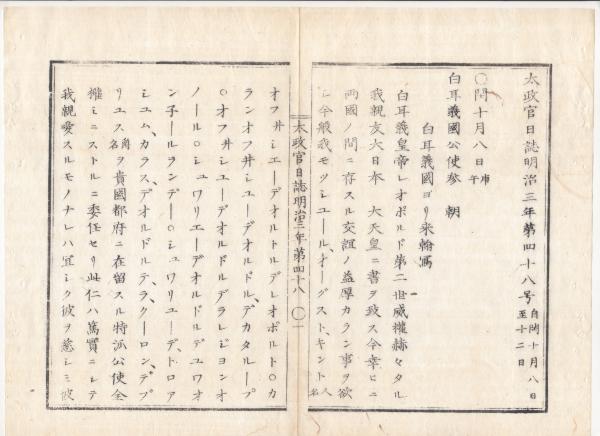 太政官日誌明治三年第四十八号 自閏十月八日 至十二日
○閏十月八日 庚午
白耳義国公使参 朝
白耳義國ヨリ来翰寫
白耳義皇帝レオポルド第二世威權赫々タル
我親友大日本 大天皇ニ書ヲ致ス今幸ヒニ
両國ノ間ニ存スル交誼ノ益厚カラン事ヲ欲
シ今般我モツシユール、オーグスト、キント 人名
太政官日誌明治三年第四十八 ○一
オフ井シエーデオルドルデレオポルト○カ
ランオフ井シユーデオルドル、デカタループ
○オフ井シユーデオルドルデラレジヨンオ
ノール○シュワリエーデオルドルデュワオ
ン子ールランデー○シュワリユーデ、ドロア
シエム、カラス、デオルドルテ、ラ、クーロン、デプ
リユス 肖名 ヲ貴國都府ニ在留スル特派公使全
權ミニストルニ委任セリ此仁ハ篤實ニシテ
我親愛スルモノナレハ宜シク彼ヲ慈シミ彼